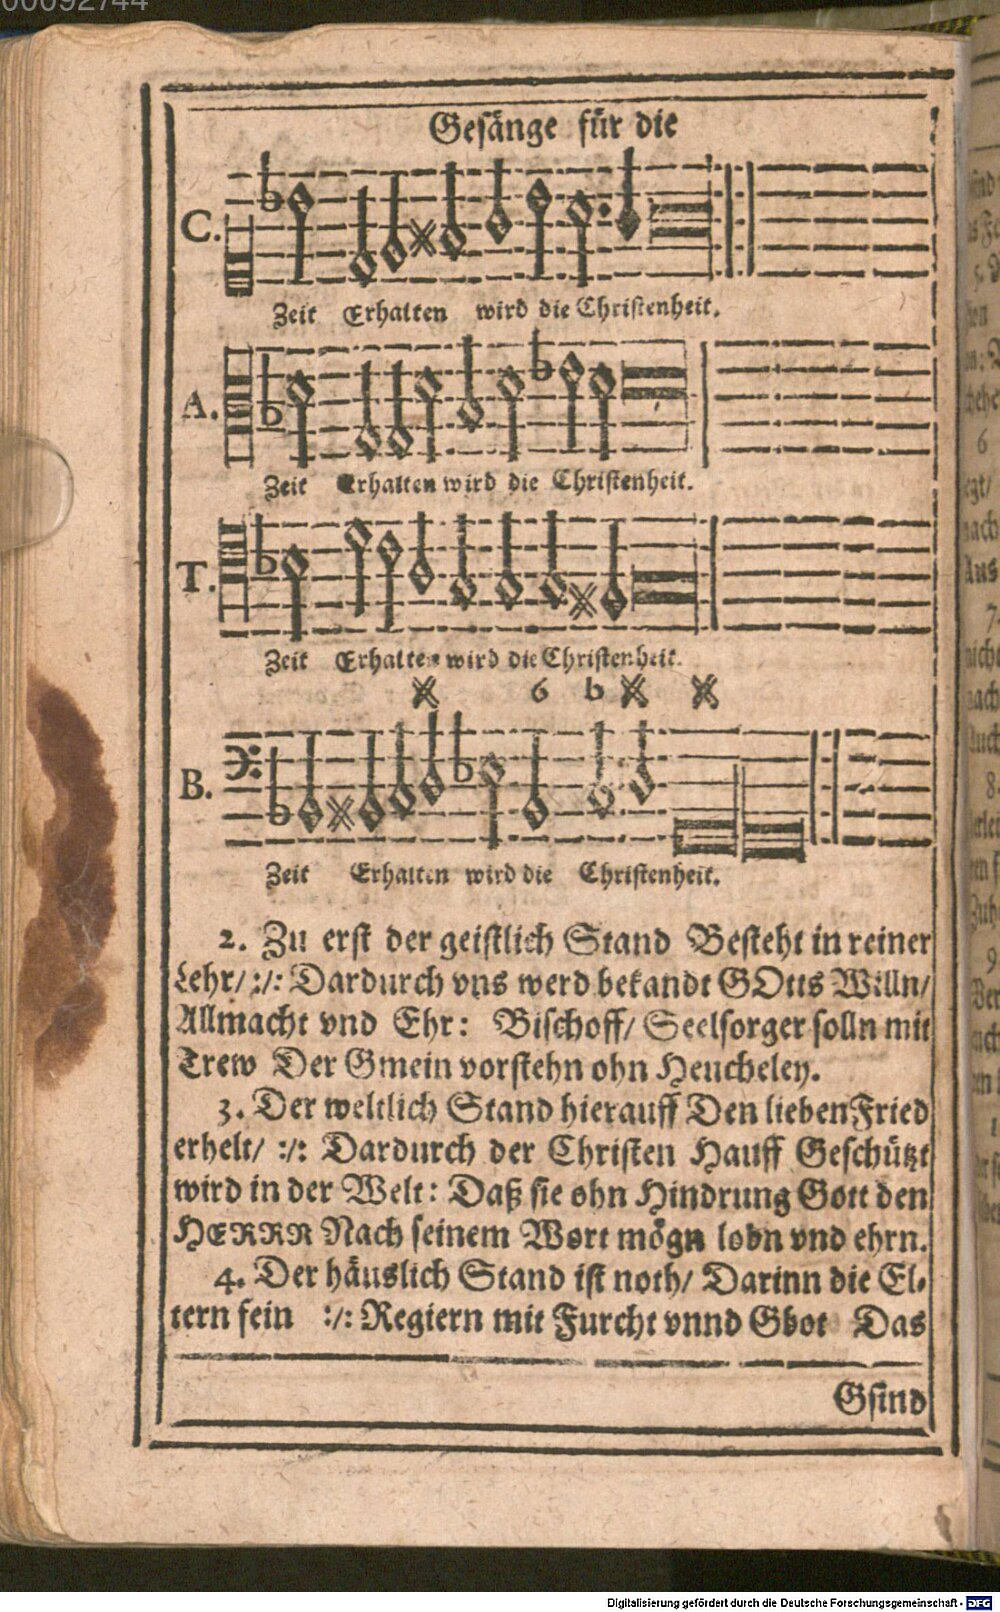 00092744
Gesänge für die
C.
Zeit Erhalten wird die Christenheit.
A.
Zeit Erhalten wird die Christenheit.
T.
Zeit Erhalten wird die Christenheit.
6 b
B.
Zeit Erhalten wird die Christenheit.
2. Zu erst der geistlich Stand Besteht in reiner
Lehr/ :/: Dardurch vns werd bekandt GOtts Willn/
Allmacht vnd Ehr: Bischoff/ Seelsorger solln mit
Trew Der Gmein vorstehn ohn Heucheley.
3. Der weltlich Stand hierauff Den lieben Fried
erhelt/ :/: Dardurch der Christen Hauff Geschützt
wird in der Welt: Daß sie ohn Hindrung Gott den
HERRN Nach seinem Wort mögn lobn vnd ehrn.
4. Der häuslich Stand ist noth/ Darinn die El-
tern fein :/: Regiern mit Furcht vnnd Gbot Das
Gsind
Digitalisierung gefördert durch die Deutsche Forschungsgemeinschaft - DFG